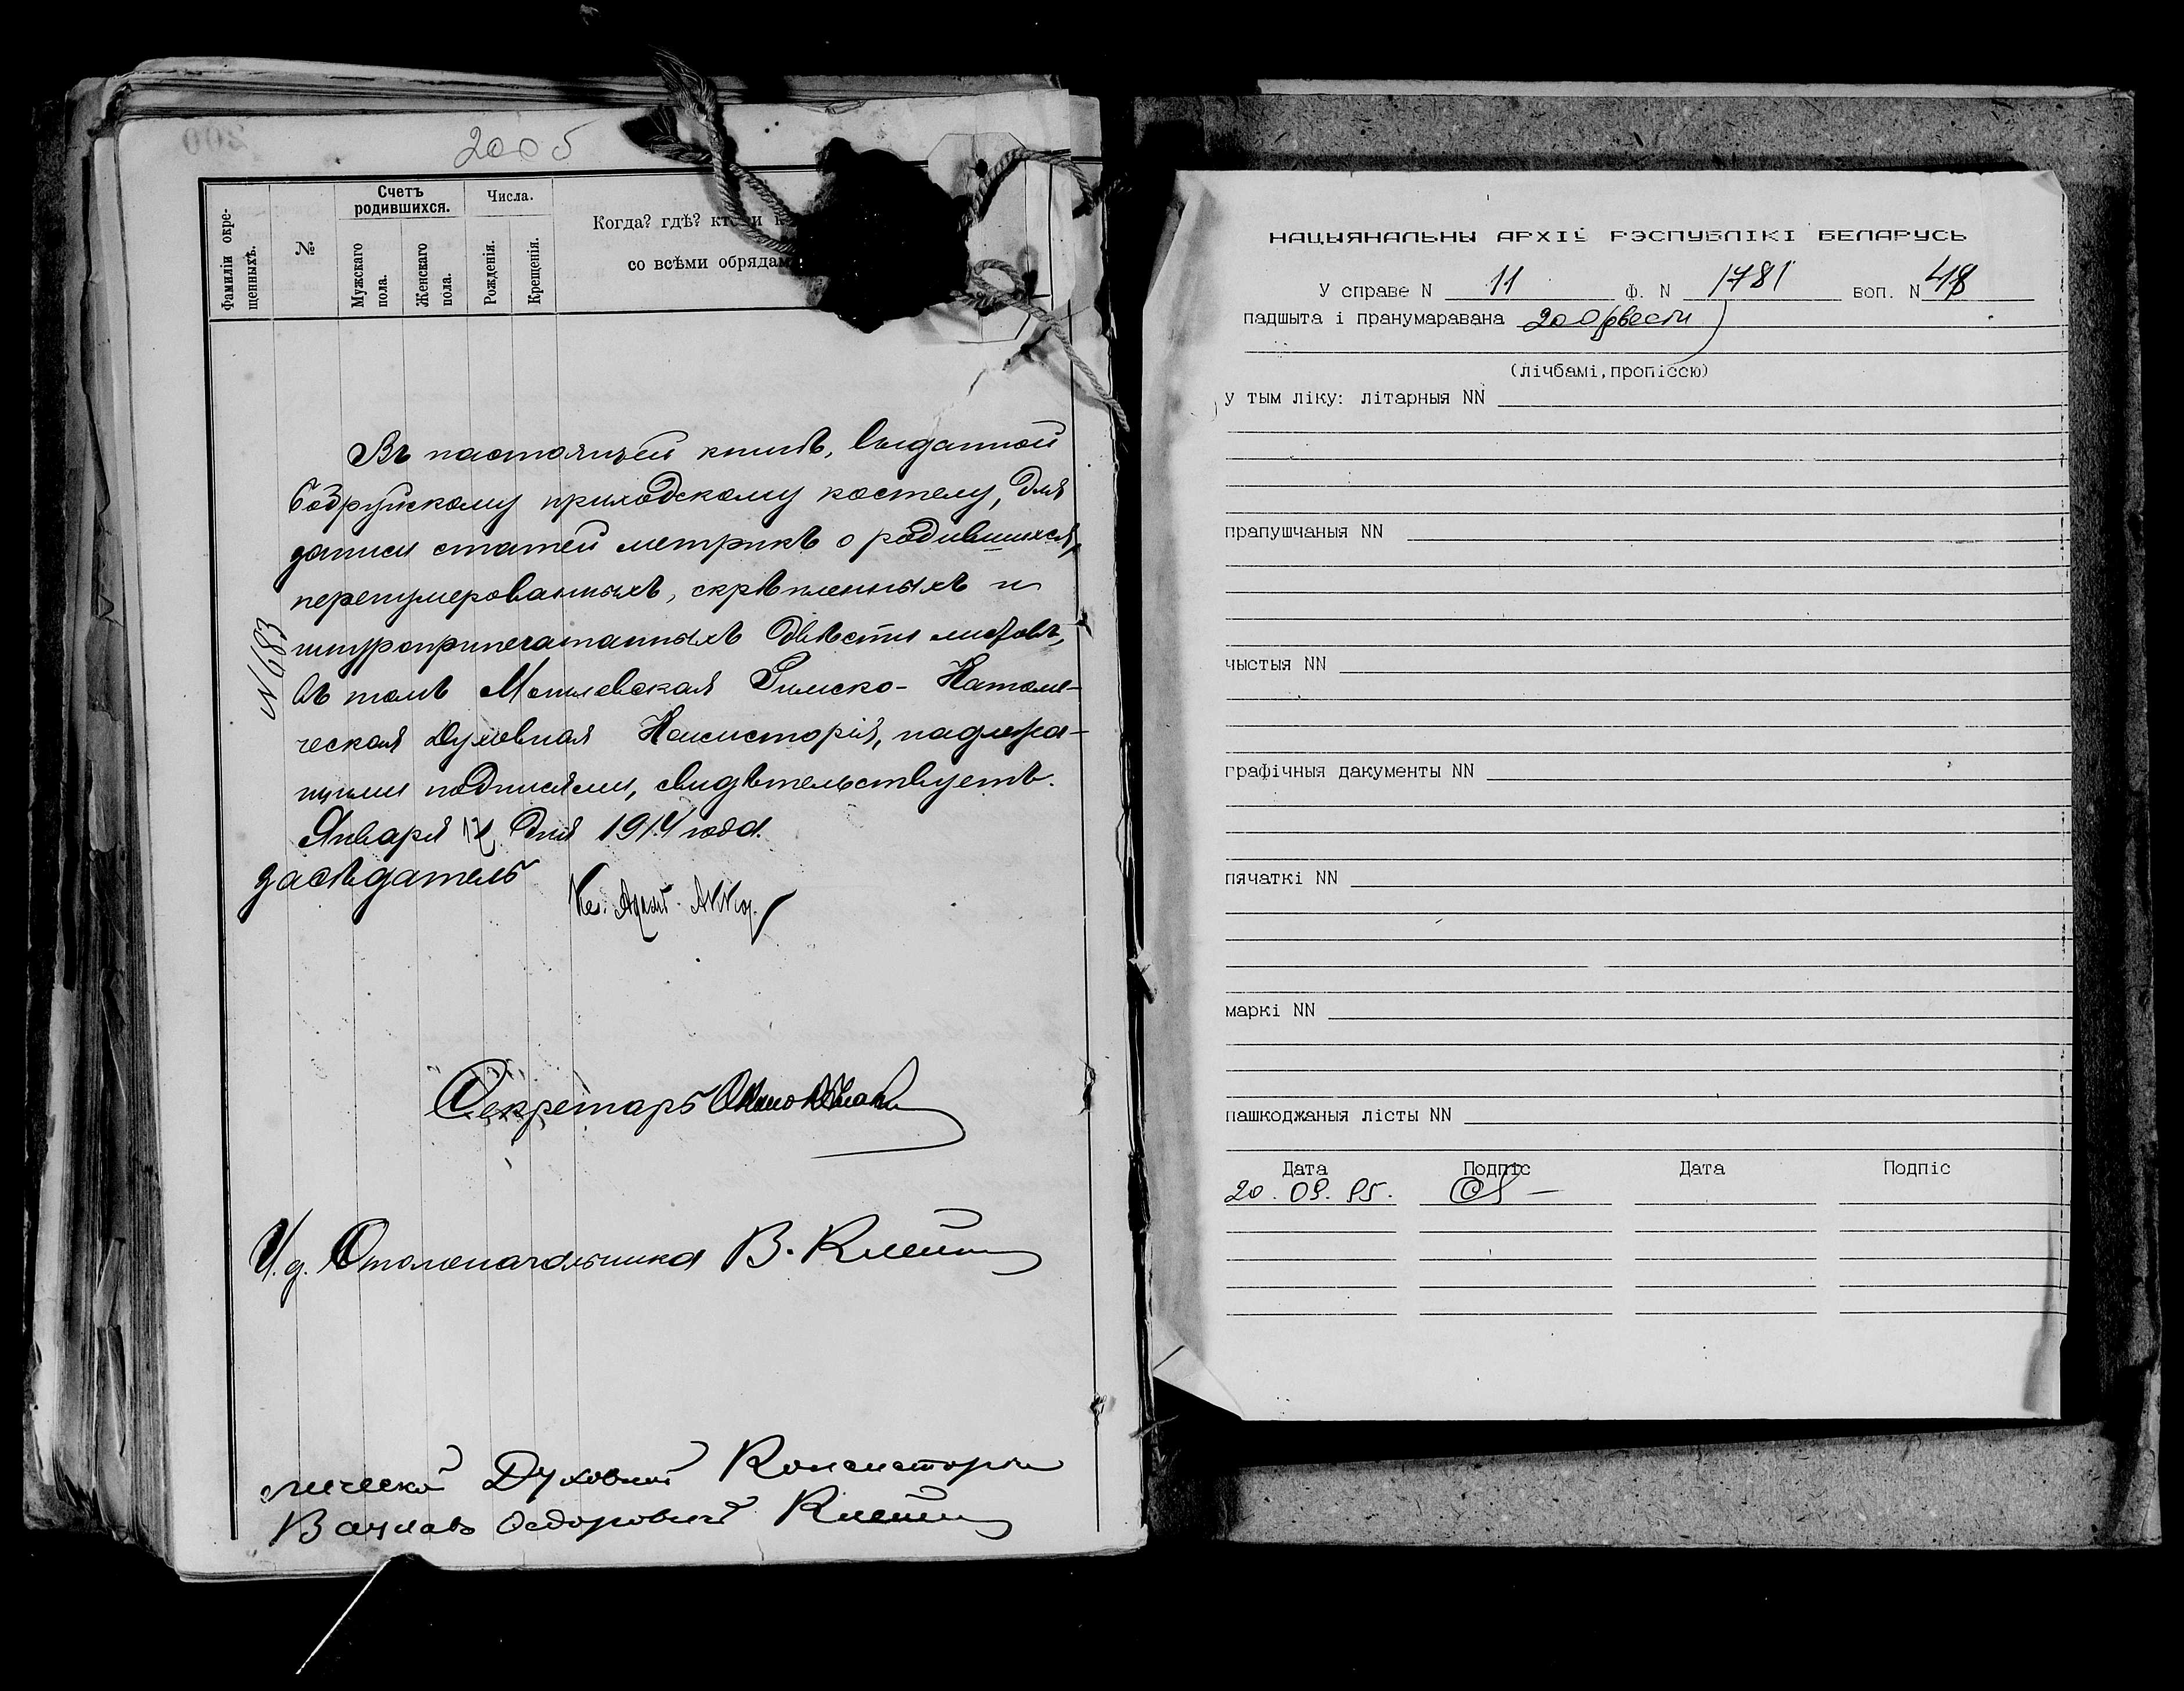 200 б
Фамиліи окре-
щенныхъ.
№
Счетъ
родившихся.
Мужскаго
пола.
Женскаго
пола.
Числа.
Рожденія.
Крещенія.
Когда? гдѣ? кто и
со всѣми обрядам
Въ настоящей книгѣ, выданной
Бобруйскому приходскому костелу, для
записи статей метрикъ о родившихся,
перенумерованныхъ, скрѣпленныхъ и
шнуроприпечатанныхъ двѣсти листовъ,
въ томъ Могилевская Римско-Католи-
ческая Духовная Консисторія, надлежа-
щими подписями, свидѣтельствуетъ.
Января 17 дня 1914 года.
№ 683
засѣдатель
Секретарь
И.д. Столоначальника В. Клейн
лической Духовной Консисторіи
Вацлавъ Клейн
НАЦЫЯНАЛЬНЫ АРХІЎ РЭСПУБЛІКІ БЕЛАРУСЬ
У справе N 11 Ф. N 1781 воп. N 48
падшыта і пранумаравана 200 (двести)
(лічбамі,пропіссю)
у тым ліку: літарныя NN
прапушчаныя NN
чыстыя NN
графічныя дакументы NN
пячаткі NN
маркі NN
пашкоджаныя лісты NN
Дата Подпіс Дата Подпіс
20. 09. 95.